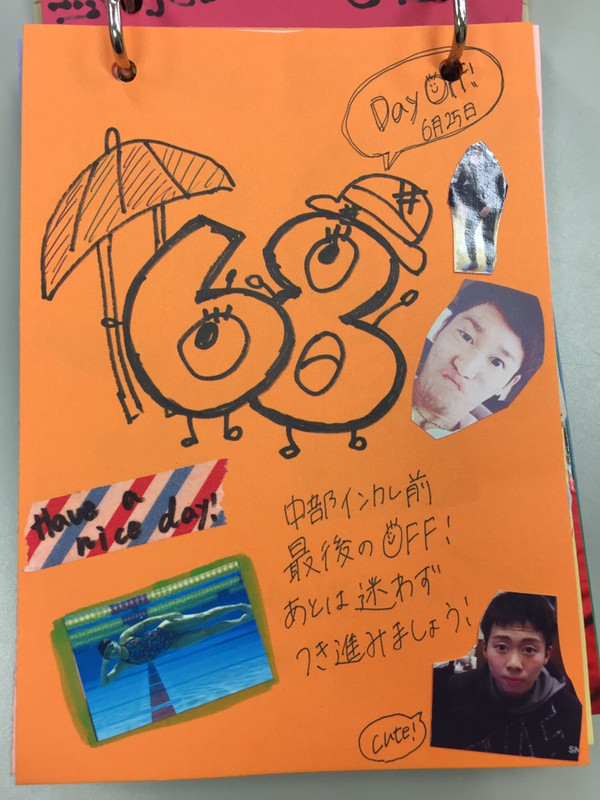 Day Off!!
6月25日
68
#
Have a
nice day!
中部インカレ前
最後のOFF!
あとは迷わず
つき進みましょう!
cute!
SN